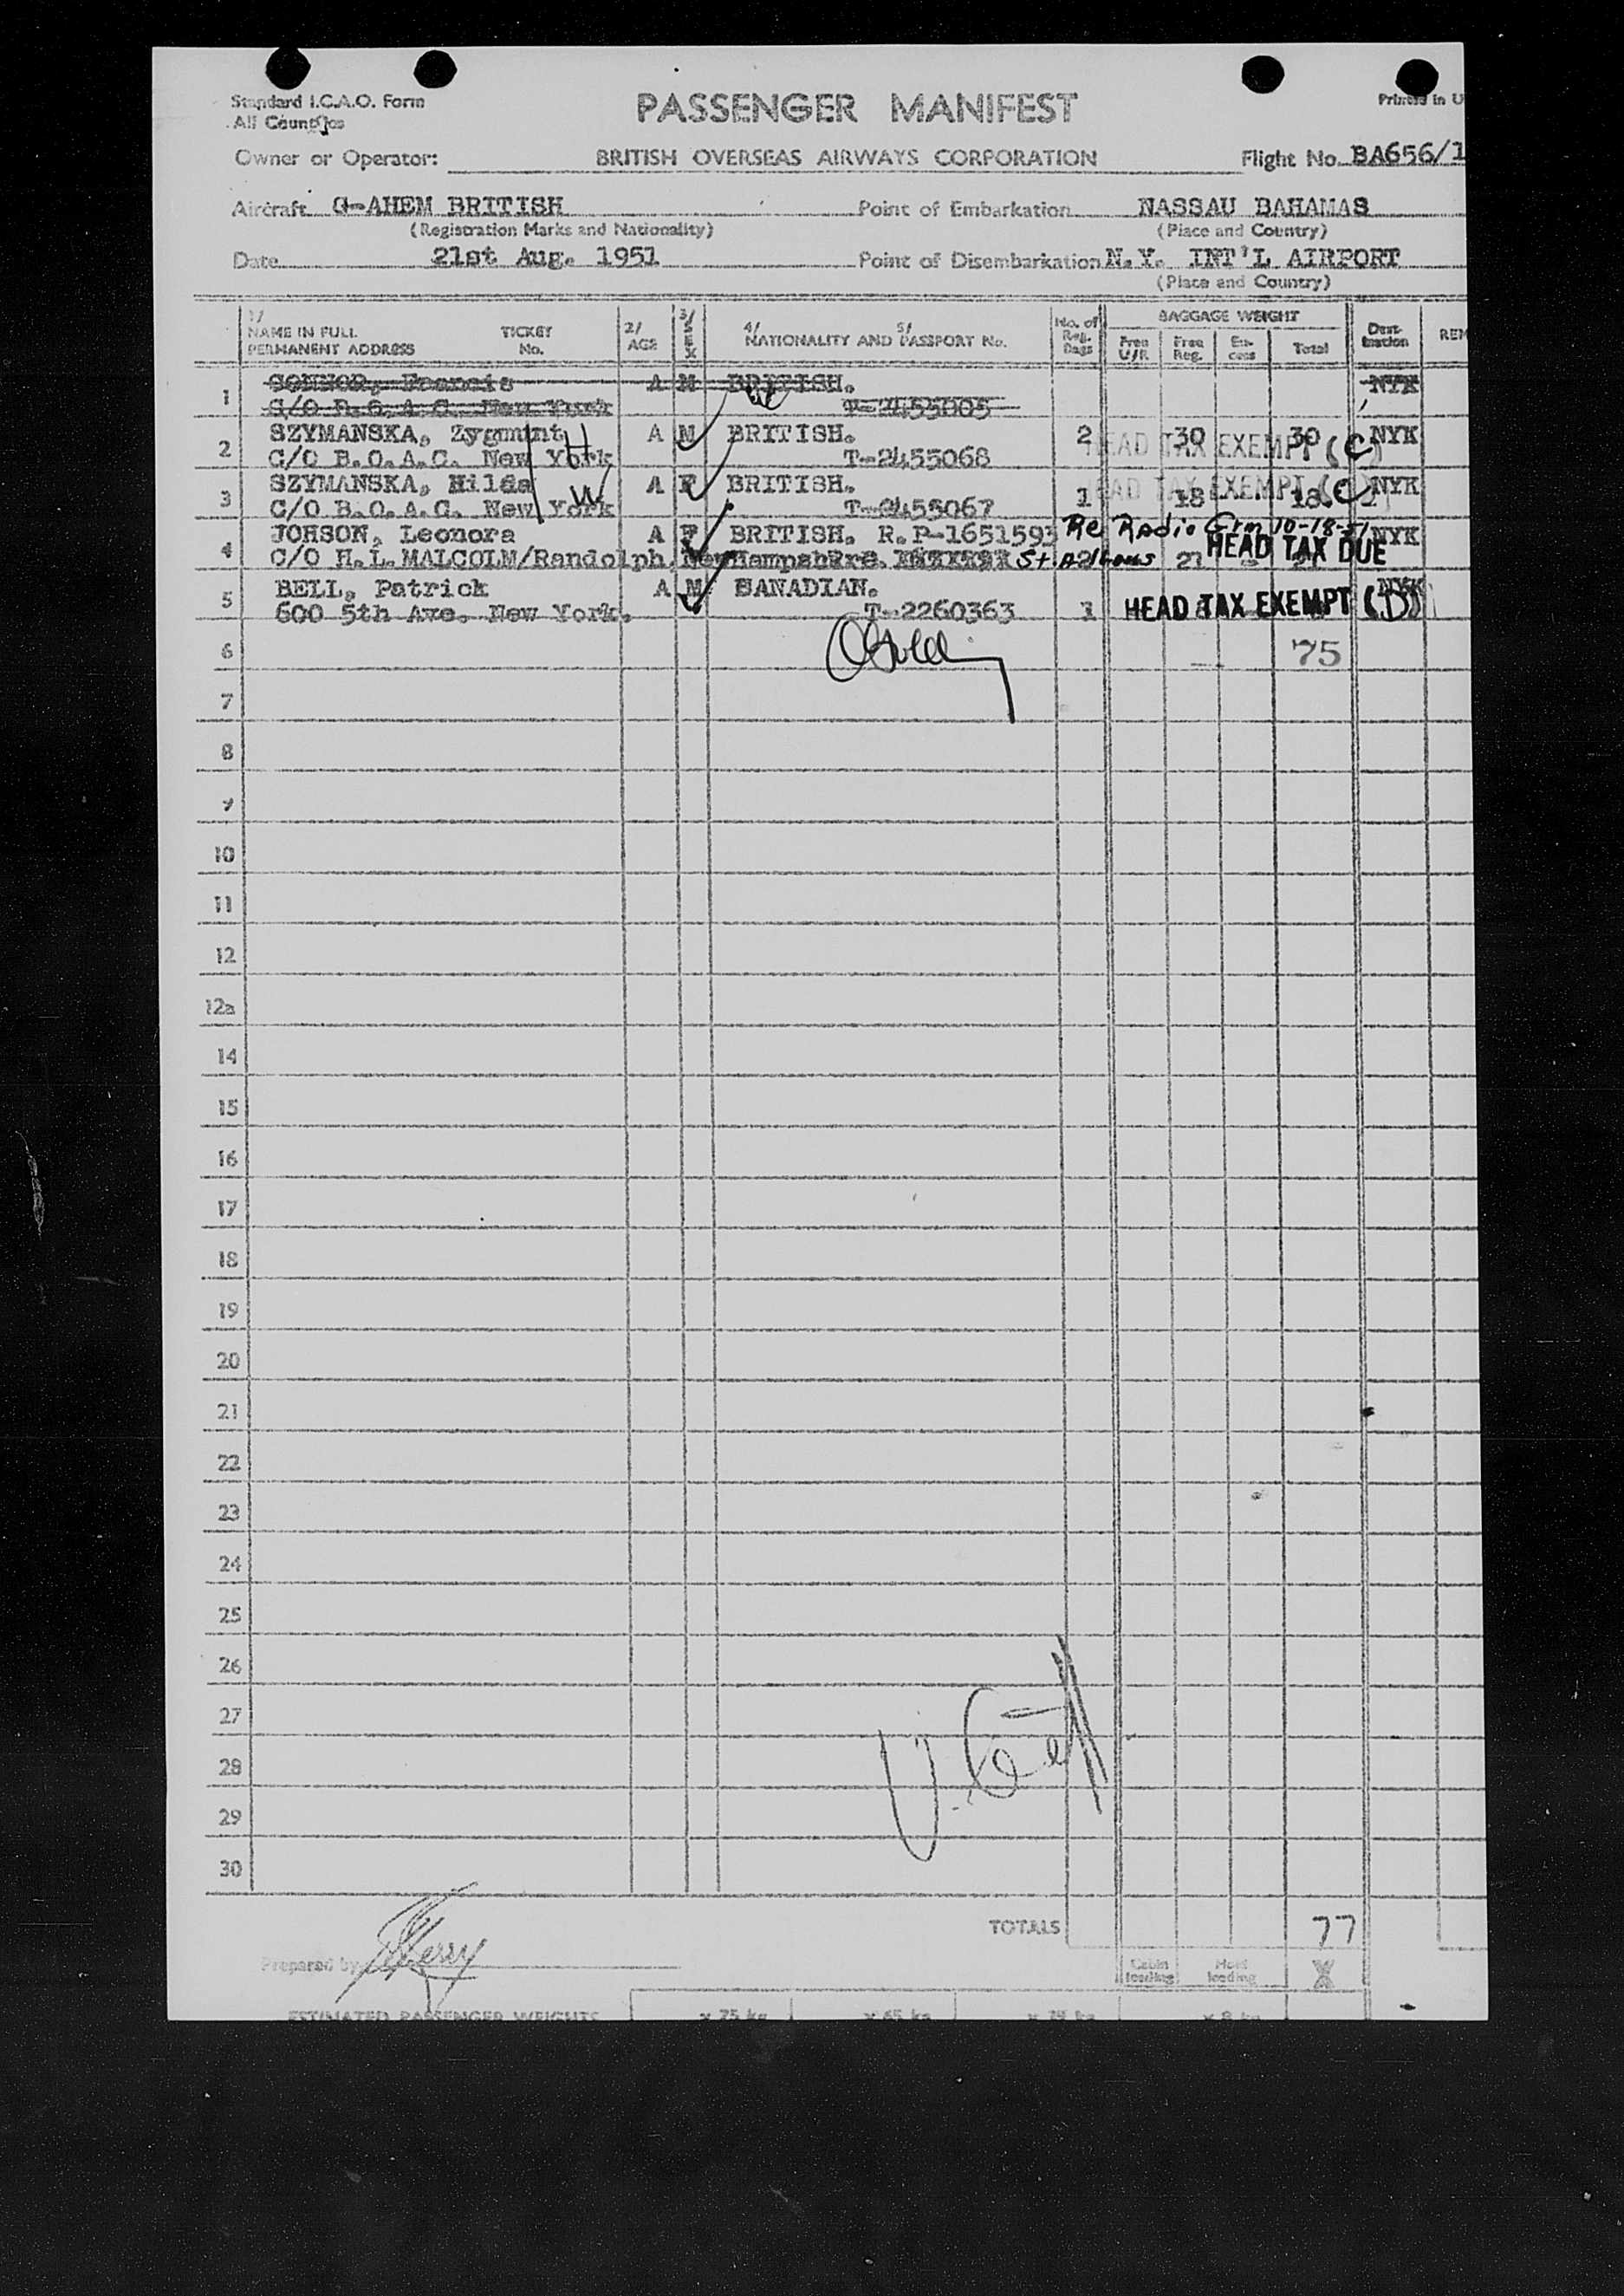 Standard I.C.A.O. Form
All Countries
PASSENGER MANIFEST
Printed in U
Owner or Operator: BRITISH OVERSEAS AIRWAYS CORPORATION Flight No. BA656/1
Aircraft G-AHEM BRITISH Point of Embarkation NASSAU BAHAMAS
(Registration Marks and Nationality) (Place and Country)
Date 21st Aug. 1951 Point of Disembarkation N.Y. INT'L AIRPORT
(Place and Country)
1/ NAME IN FULL PERMANENT ADDRESS TICKET No. 2/ AGE 3/ SEX 4/ NATIONALITY AND 5/ PASSPORT No. No. of Reg. Bags BAGGAGE WEIGHT Free U/R Free Reg. Ex- cess Total Dest- ination REM
1 Francis A M BRITISH. NYK
C/O B.O.A.C. New York T-2455005
2 SZYMANSKA, Zygmunt A M BRITISH. 2 30 30 NYK
C/O B.O.A.C. New York H T-2455068 HEAD TAX EXEMPT (C)
3 SZYMANSKA, Hilda A F BRITISH. 1 18 18. NYK
C/O B.O.A.C. New York W T-2455067 HEAD TAX EXEMPT (C)
4 JOHSON, Leonora A F BRITISH. R.P-1651593 Re Radio Grm 10-18-51 NYK
C/O H.L. MALCOLM/Randolph, New Hampshire. St Albans 2 21 HEAD TAX DUE
5 BELL, Patrick A M CANADIAN. NYK
600 5th Ave. New York. T-2260363 1 HEAD TAX EXEMPT (D)
6 75
7
8
9
10
11
12
12a
14
15
16
17
18
19
20
21
22
23
24
25
26
27
28
29
30
TOTALS 77
Prepared by
Cabin loading Hold loading X
ESTIMATED PASSENGER WEIGHTS x 75 kg x 65 kg x 39 kg x 8 kg